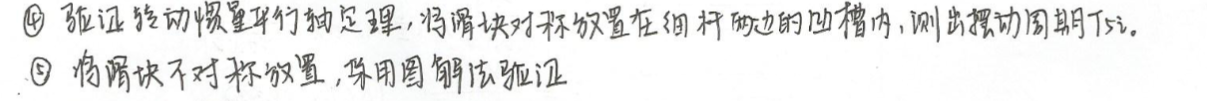 ④ 验证转动惯量平行轴定理,将滑块对称放置在细杆两边的凹槽内,测出摆动周期T5i。
⑤ 将滑块不对称放置,采用图解法验证